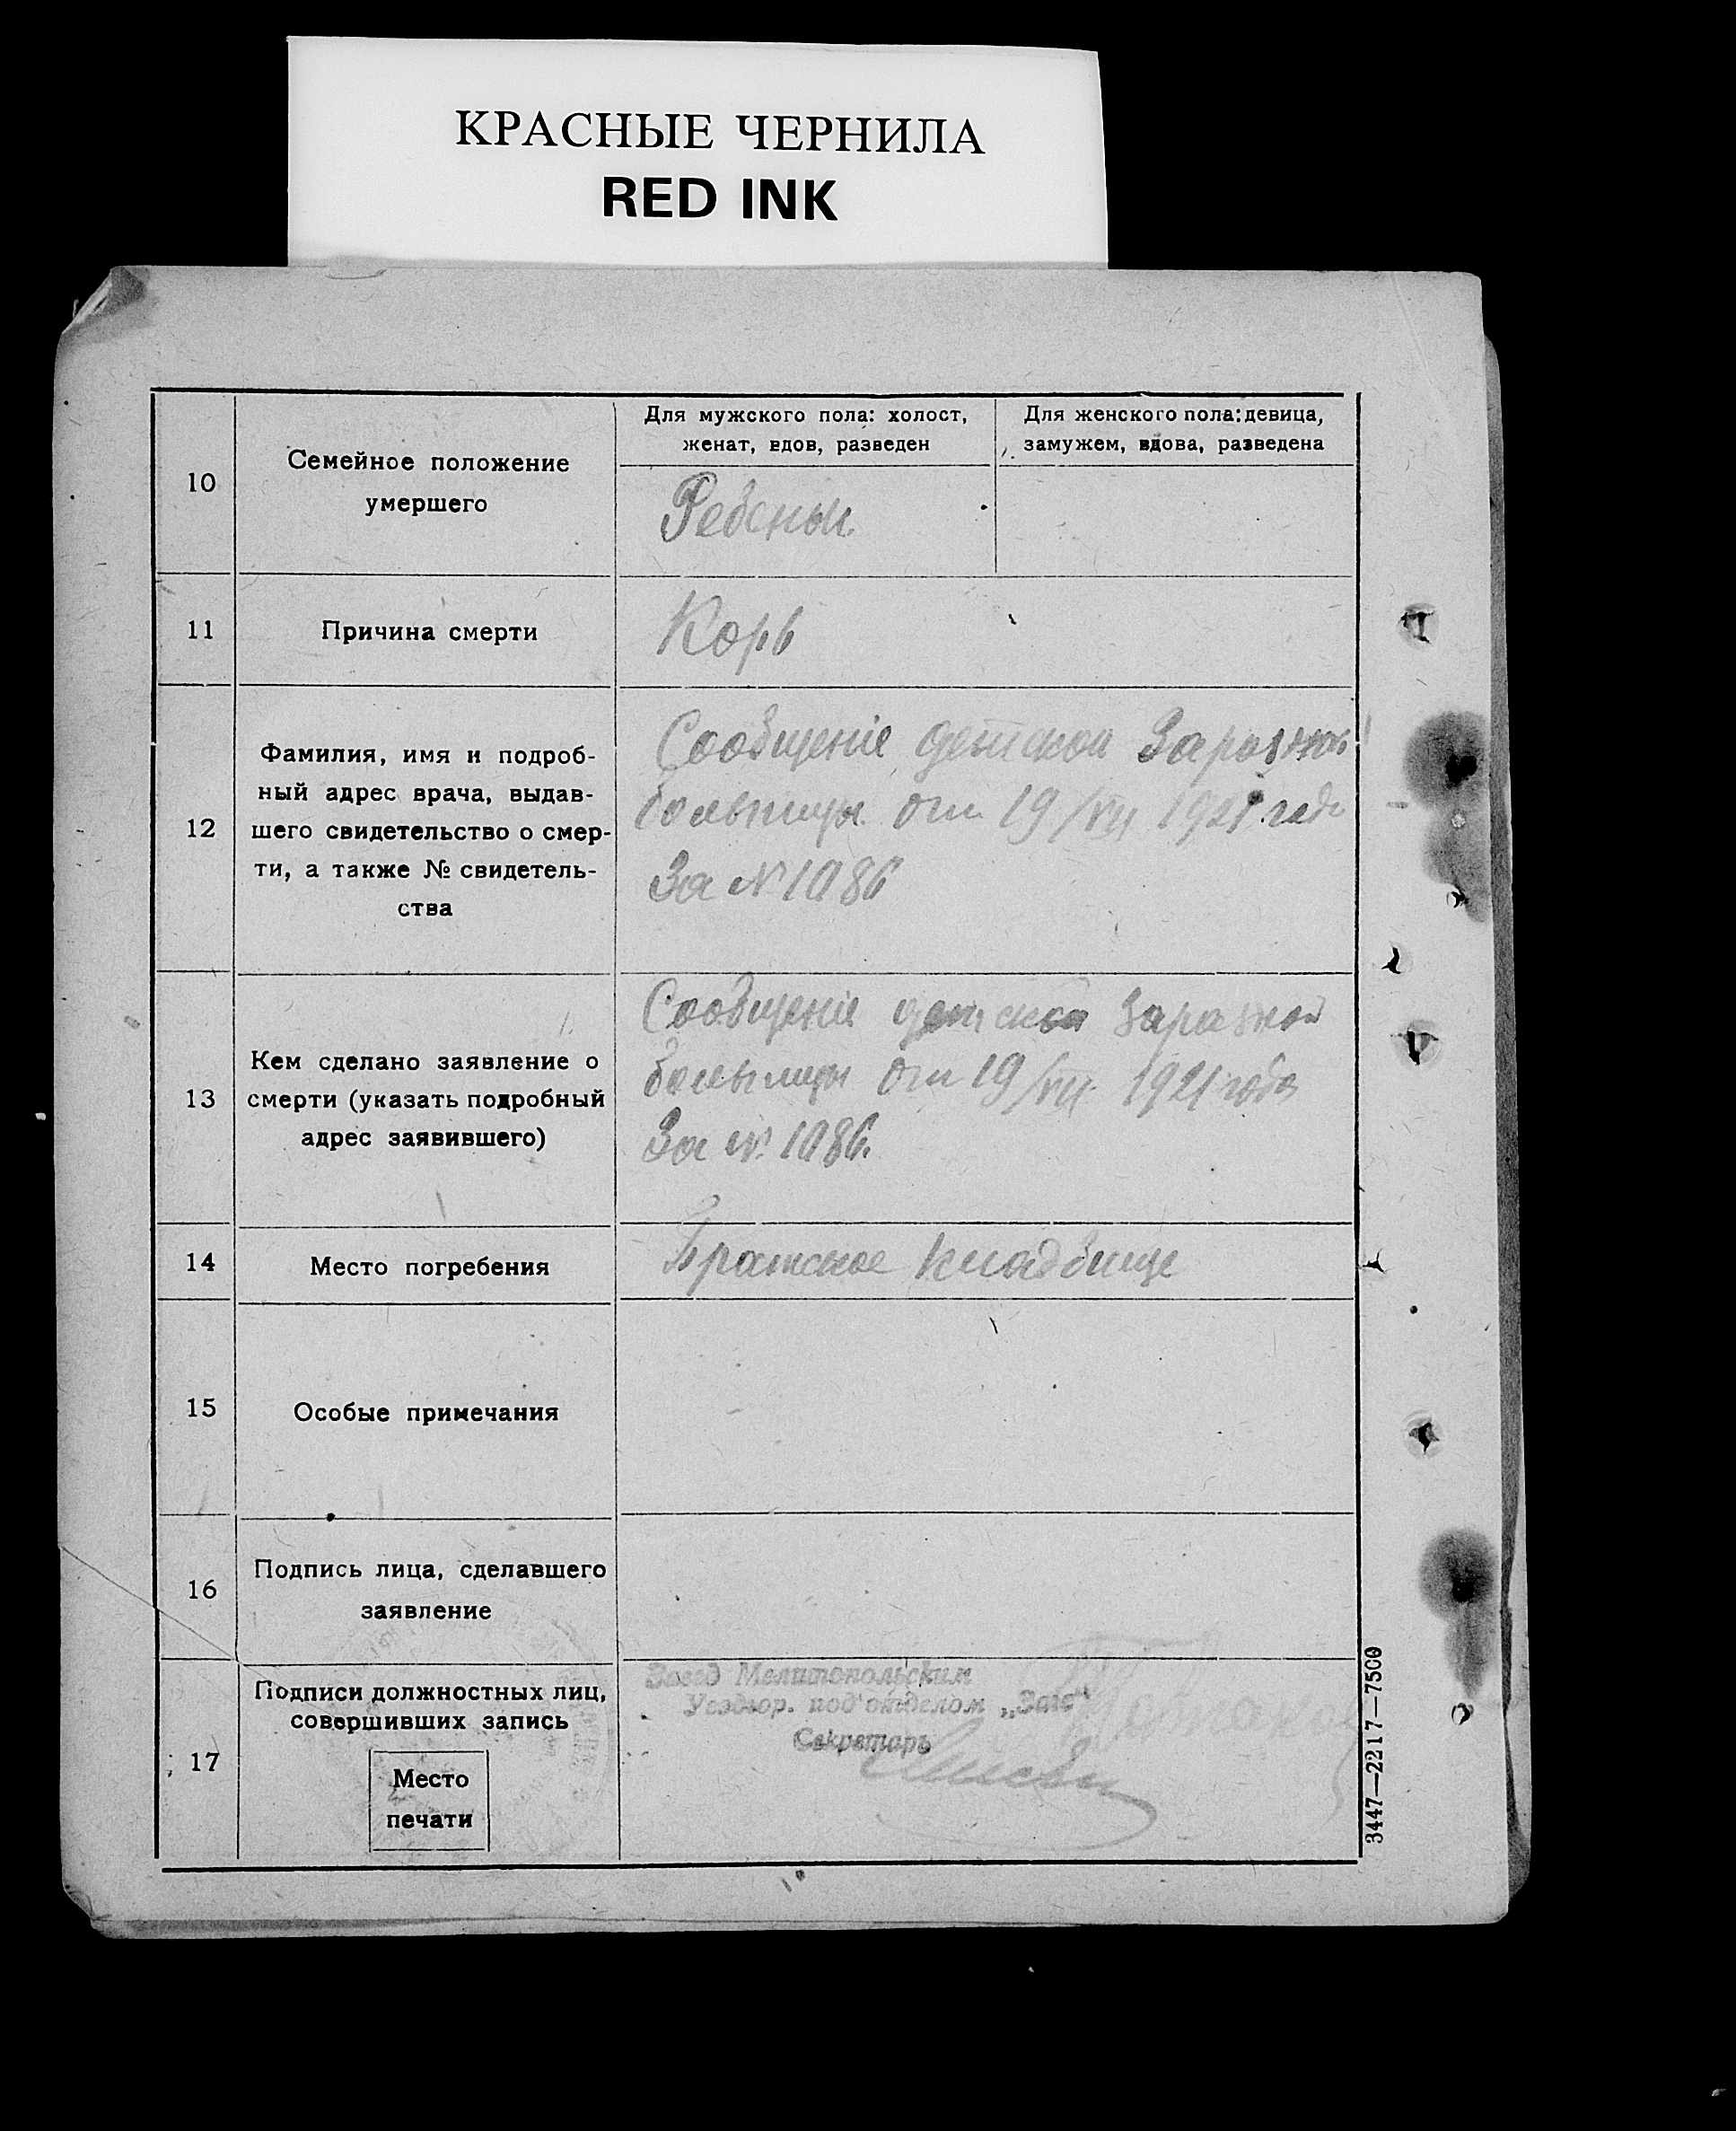 КРАСНЫЕ ЧЕРНИЛА
RED INK
10
Семейное положение
умершего
Для мужского пола: холост,
женат, вдов, разведен
Для женского пола: девица,
замужем, вдова, разведена
Ребенок
11
Причина смерти
Корь
12
Фамилия, имя и подроб-
ный адрес врача, выдав-
шего свидетельство о смер-
ти, а также № свидетель-
ства
Сообщение детской Заразной
больницы от 19/VII 1921 года
За № 1086
13
Кем сделано заявление о
смерти (указать подробный
адрес заявившего)
Сообщение детской Заразной
больницы от 19/VII 1921 года
За № 1086.
14
Место погребения
Братское кладбище
15
Особые примечания
16
Подпись лица, сделавшего
заявление
17
Подписи должностных лиц,
совершивших запись
Место
печати
Завед Мелитопольским
под'отделом „Загс"
Секретарь
3447—2217—7500